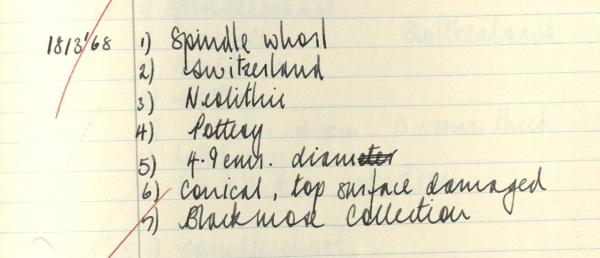 18/3/'68 1) Spindle whorl
2) Switzerland
3) Neolithic
4) Pottery
5) 4.9 cms. diam
6) Conical, top surface damaged
7) Blackmore Collection